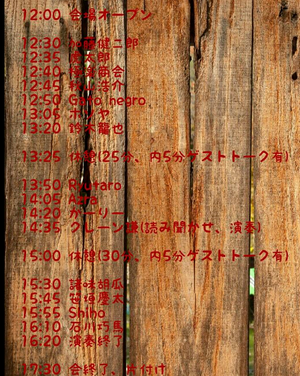 12:00 会場オープン
12:30 加藤健二郎
12:35 慶太郎
12:40 商会
12:45 浩介
12:50 Gato negro
13:05
13:20 鈴木龍也
13:25 休憩(25分、内5分ゲストトーク有)
13:50 Ryutaro
14:05
14:20 かーりー
14:35 クレーン謙(読み聞かせ、演奏)
15:00 休憩(30分、内5分ゲストトーク有)
15:30 諸味胡瓜
15:45 笹垣慶太
15:55 Shiho
16:10 石川巧馬
16:20 演奏終了
17:30 会終了、片付け